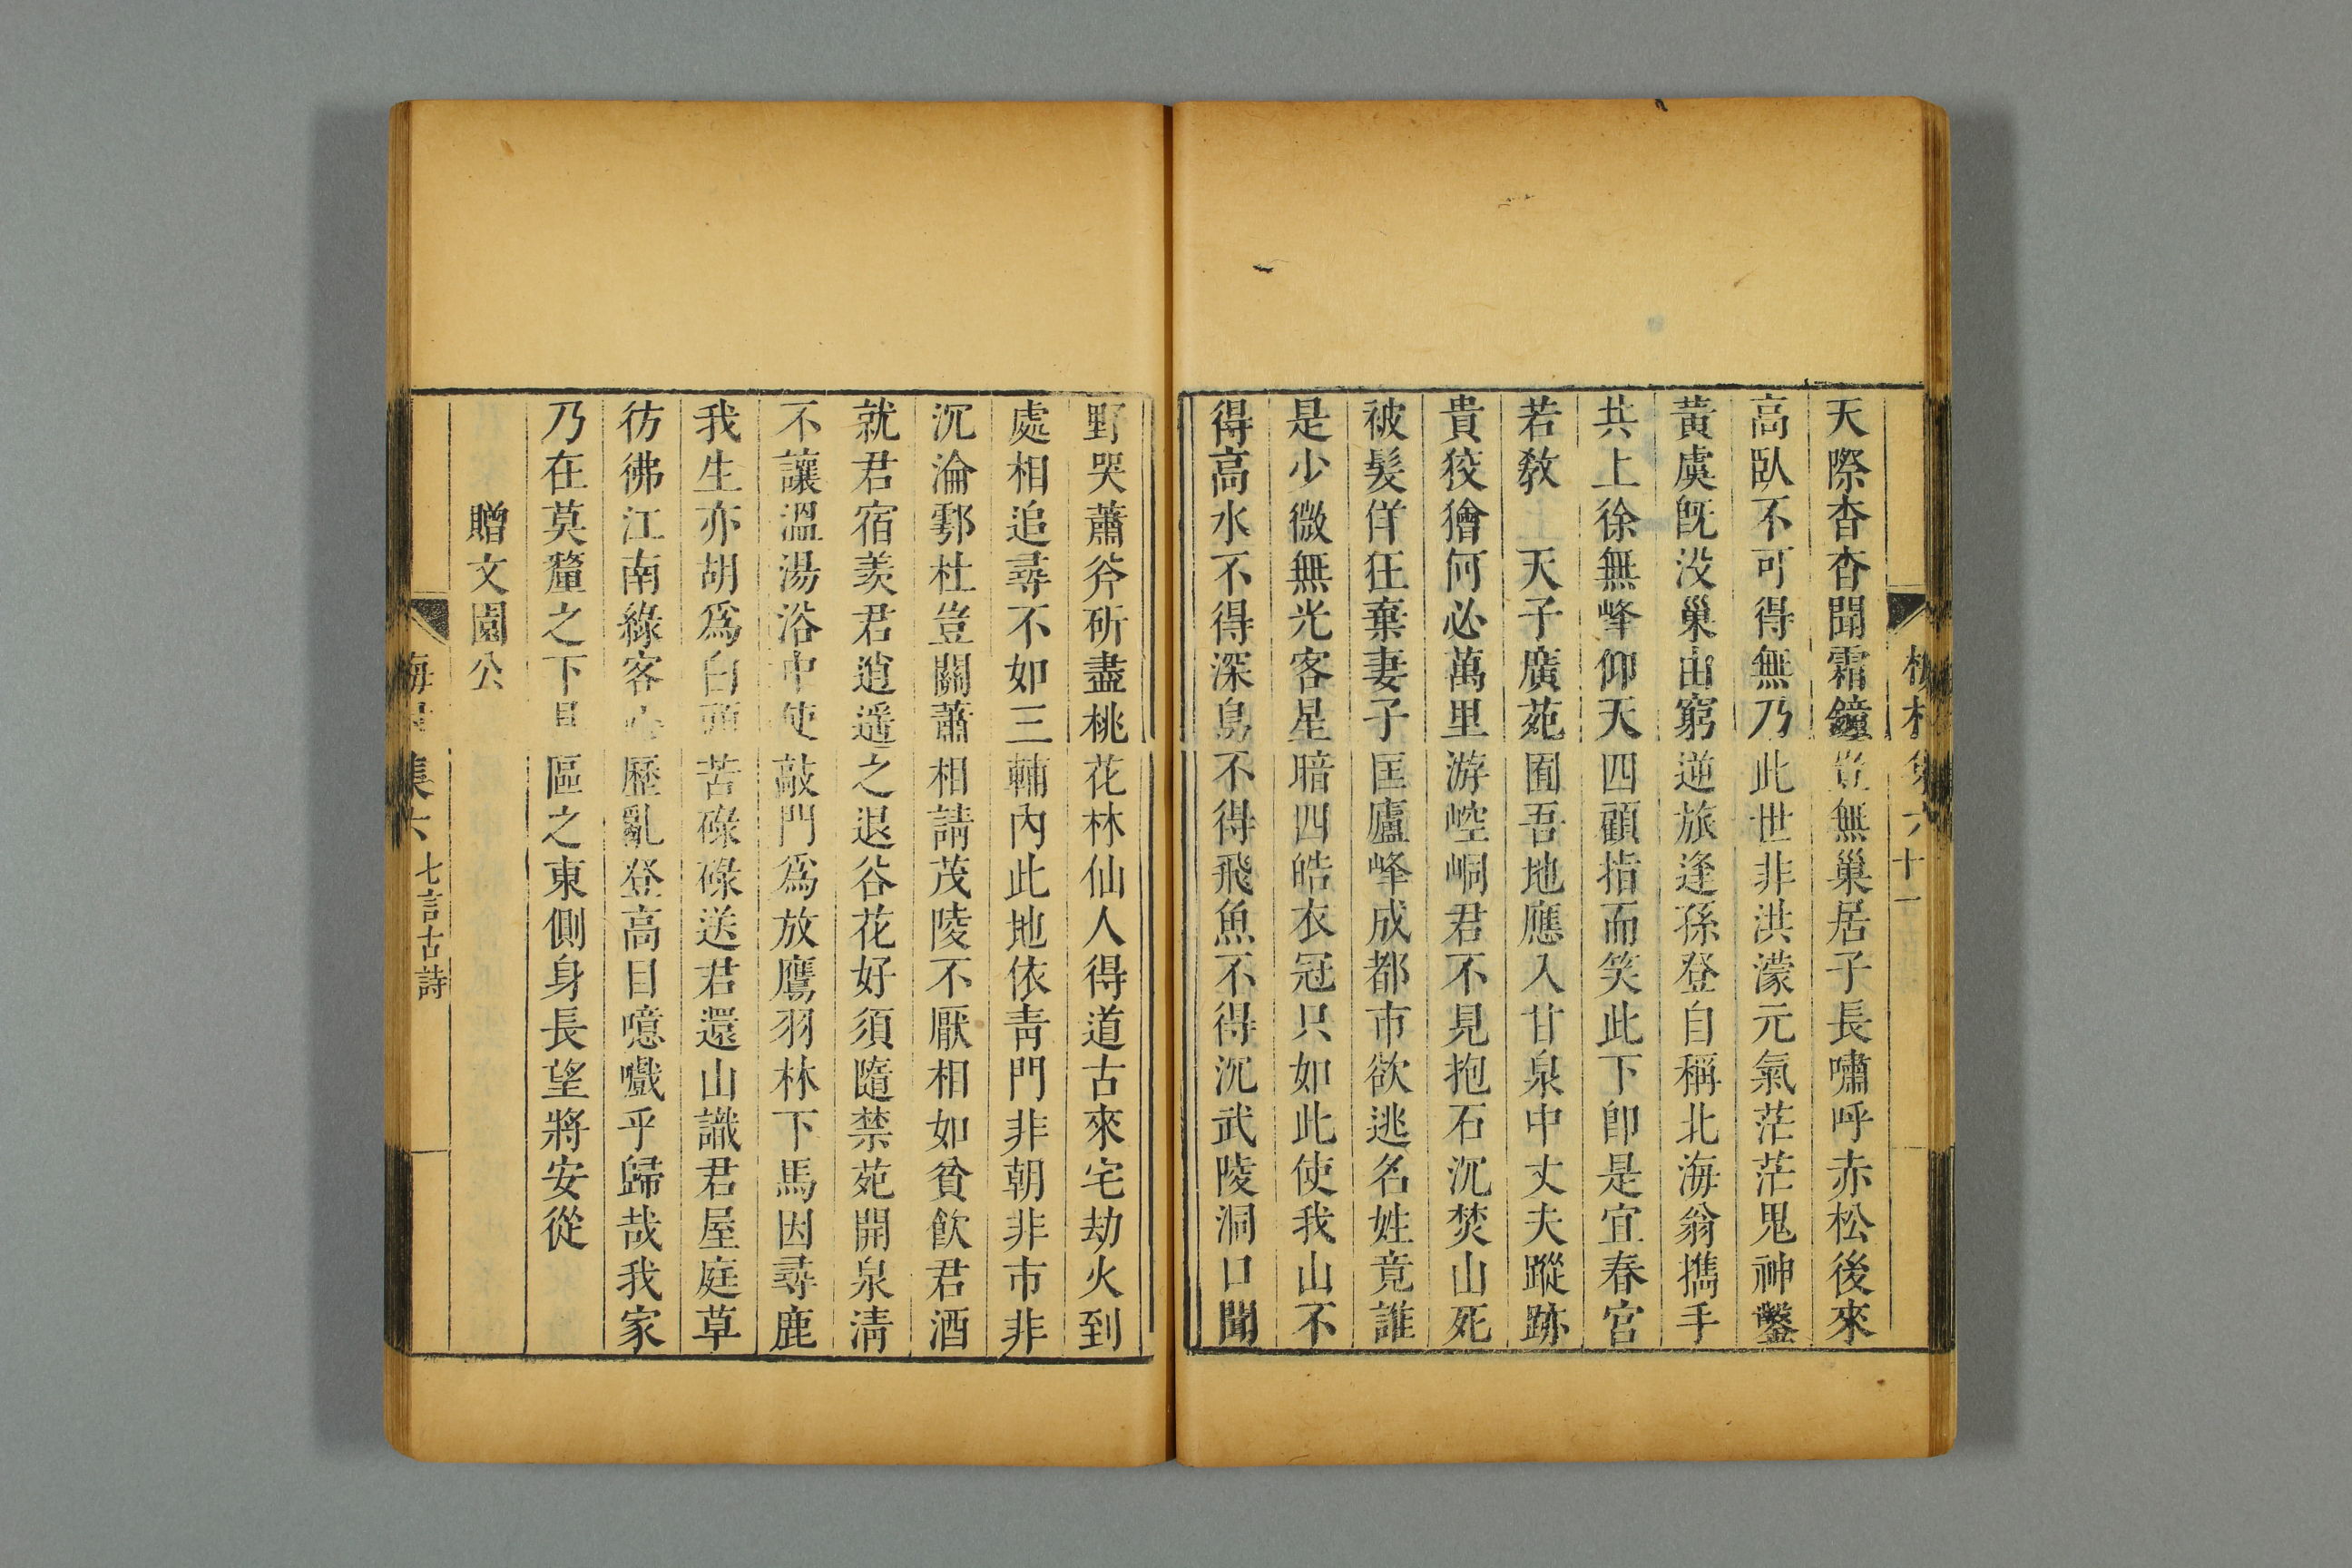 天際杳杳聞霜鐘豈無巢居子長嘯呼赤松後來
高臥不可得無乃此世非洪濛元氣茫茫鬼神鑿
黃虞旣没巢由窮逆旅逢孫登自稱北海翁攜手
共上徐無峰仰天四顧指而笑此下卽是宜春宮
若敎 天子廣苑囿吾地應入甘泉中丈夫蹤跡
貴狡獪何必萬里游崆峒君不見抱石沉焚山死
被髮佯狂棄妻子匡廬峰成都市欲逃名姓竟誰
是少微無光客星暗四皓衣冠只如此使我山不
得高水不得深鳥不得飛魚不得沉武陵洞口聞
十一
野哭蕭斧斫盡桃花林仙人得道古來宅劫火到
處相追尋不如三輔內此地依靑門非朝非市非
沉淪鄠杜豈關蕭相請茂陵不厭相如貧飮君酒
就君宿羨君逍遥之退谷花好須隨禁苑開泉淸
不讓溫湯浴中使敲門爲放鷹羽林下馬因尋鹿
我生亦胡爲白頭苦碌碌送君還山識君屋庭草
彷彿江南綠客心歷亂登高目噫嚱乎歸哉我家
乃在莫釐之下具區之東側身長望將安從
贈文園公
集六 七言古詩